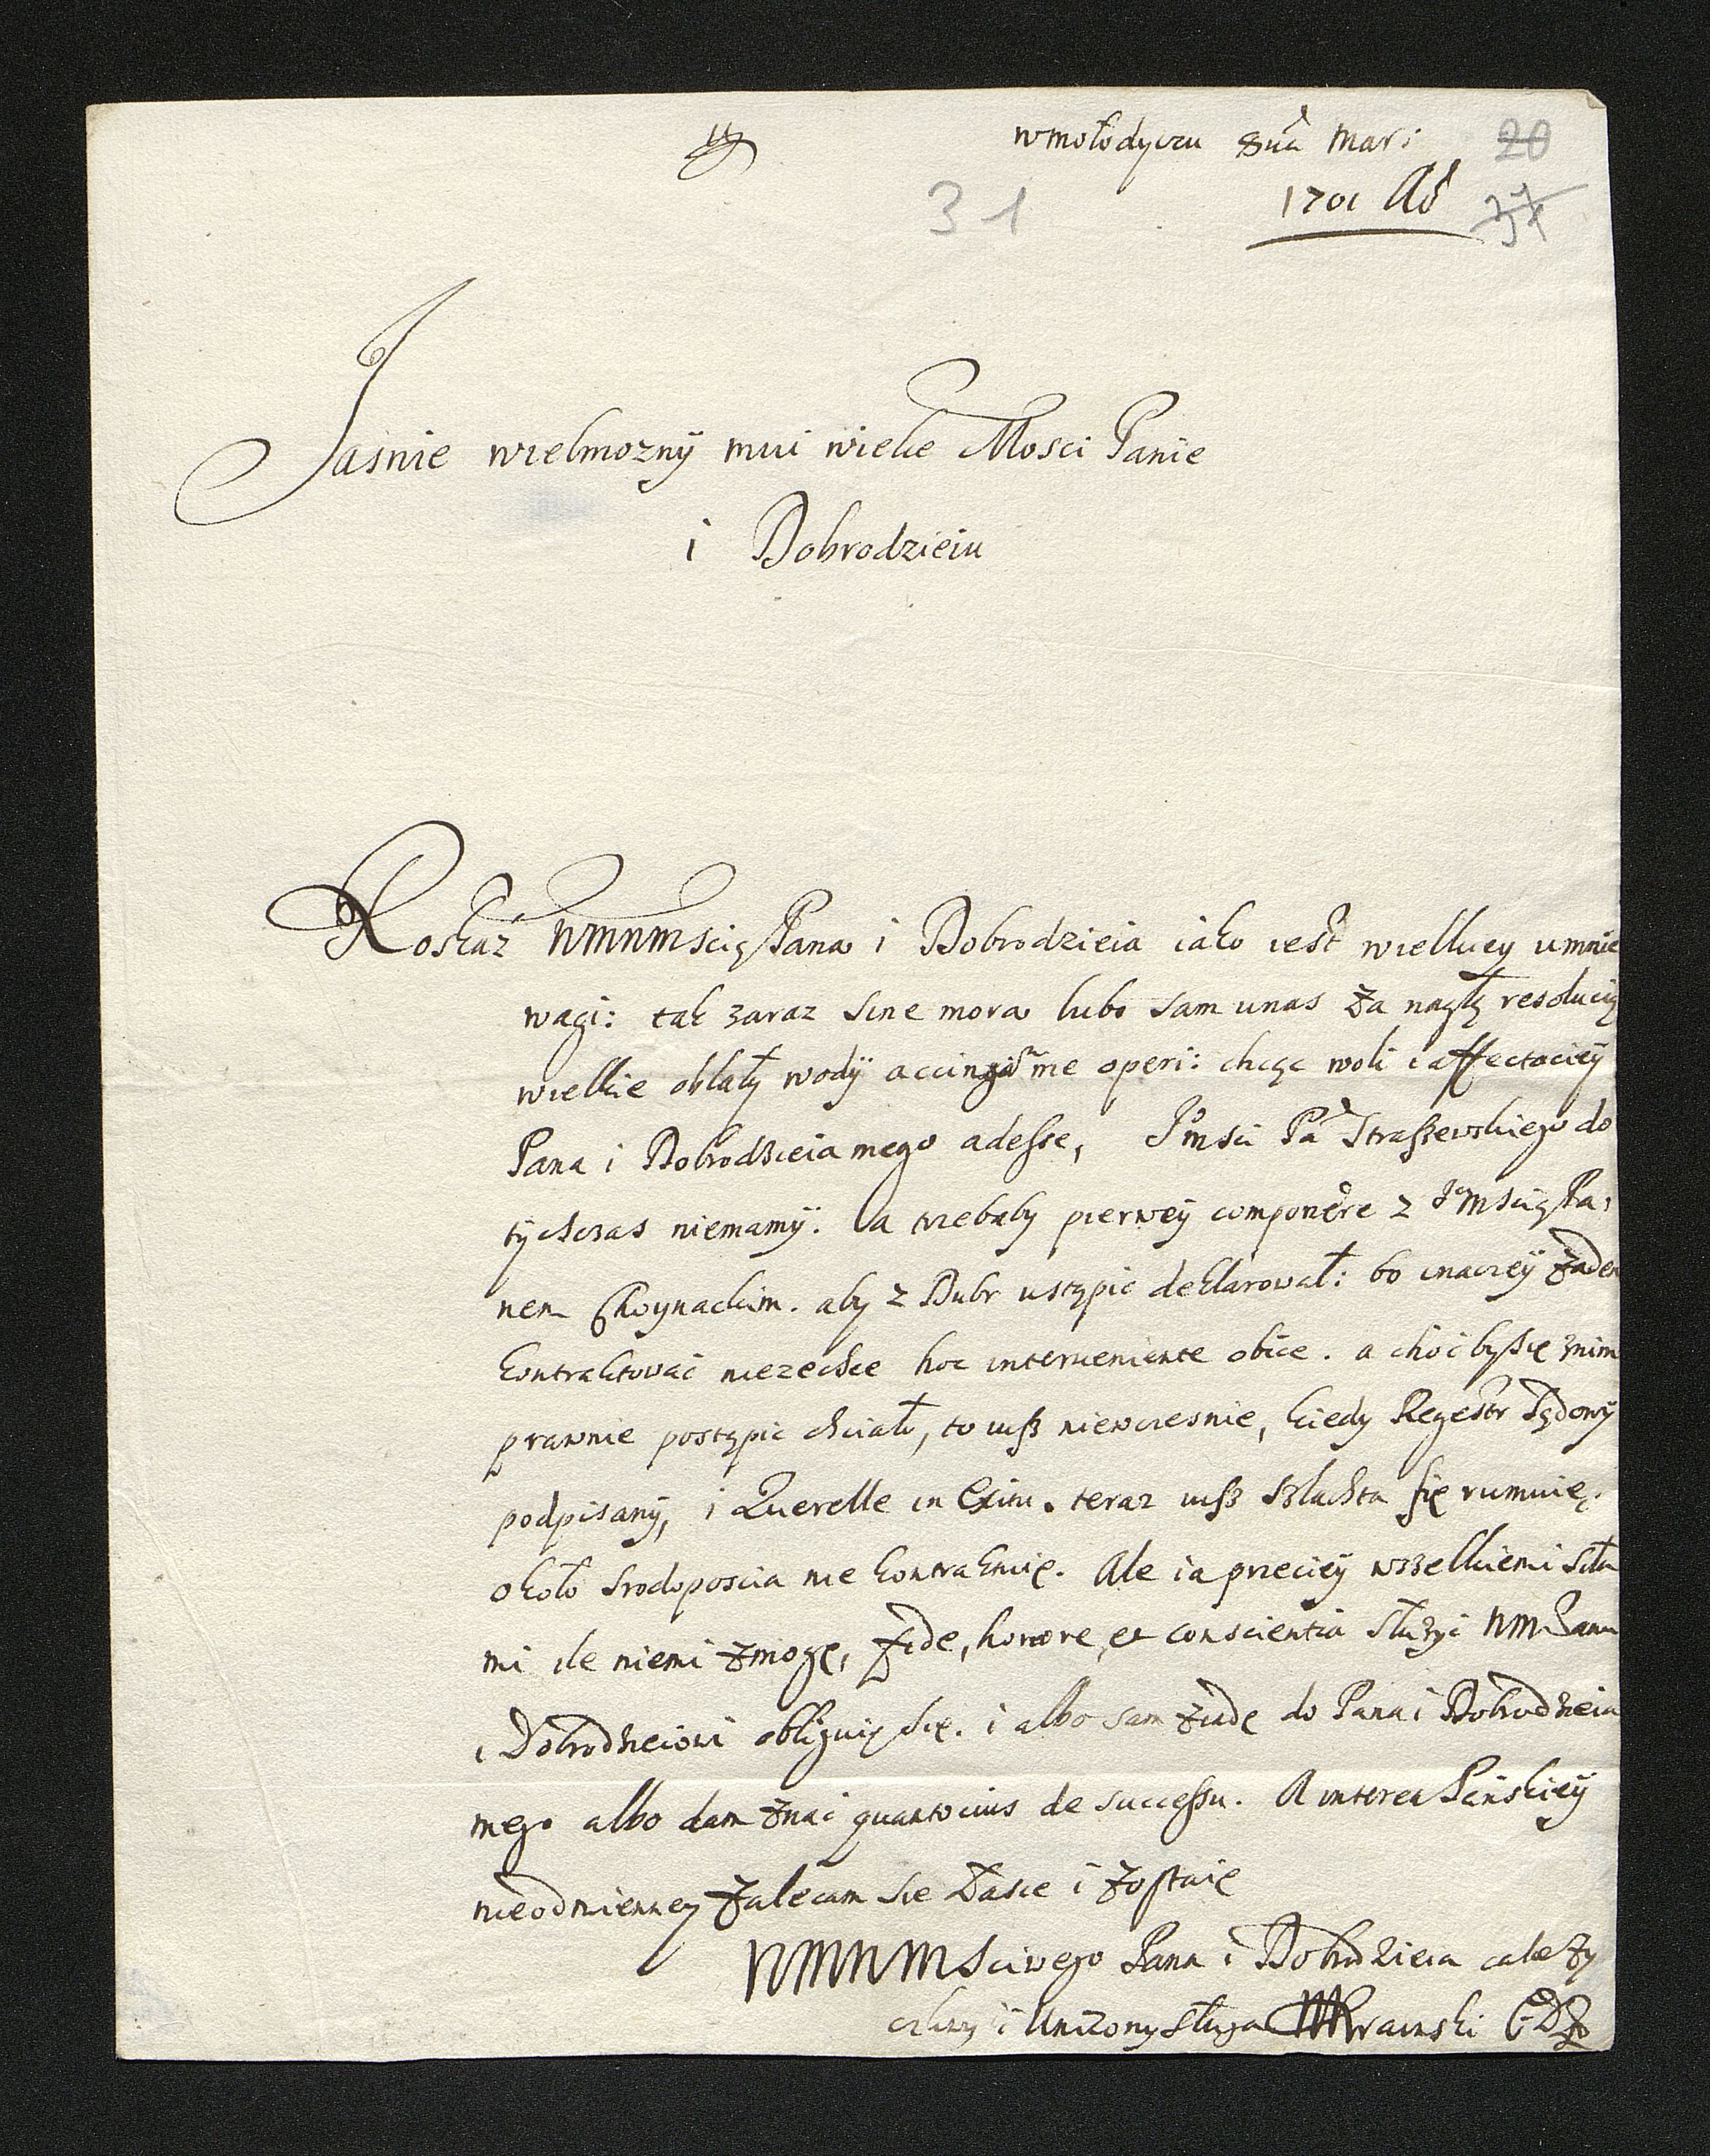 w Mołodyczu 8va Mar:
20
31
1701 Ao
Jasnie wielmozny mui wielce Mosci Panie
i Dobrodzieiu
Roskaz WMMM scią Pana i Dobrodzieia iako iest wielkiey umnie
wagi: tak zaraz sine mora lubo sam unas za nagłą resolucią
wielkie oblały wody accingo me operi: chcąc woli i affectaciey
Pana i Dobrodzieia mego adesse, Jmsci Pa Straszewskiego do
tychczas niemamy. a trzebaby pierwey componere z Jmscią Pa:
nem Choynackim. aby z Dubr ustąpic deklarował: bo inaczey żaden
kontraktować niezechce hoc interueniente obice. a choć by się znim
prawnie postąpic chciało, to iusz niewczesnie, kiedy Regestr Sądowy
podpisany, i Querelle in Exitu. teraz iusz szlachta się rumuie,
około srodoposcia nie kontraktuię. Ale ia przeciey wszelkiemi siła
mi ile niemi zmogę, fide, honore, et conscientia służyć WM Panu
i Dobrodzieiowi obliguię się. i albo sam ziadę do Pana i Dobrodzieia
mego albo dam znać quantocius de successu. A interea Pańskiey
nieodmienney zalecam sie Łasce i zostaię
WMMM sciwego Pana i Dobrodzieia cale zy
czliwy i Unizony sługa Krainski